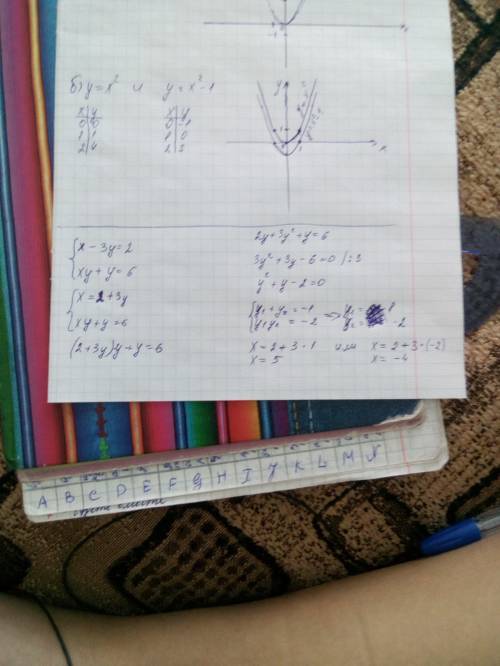 б) y = x² и y = x² - 1
x | y
0 | 0
1 | 1
2 | 4
x | y
0 | -1
1 | 0
2 | 3
y
x
{ x - 3y = 2
xy + y = 6
{ x = 2 + 3y
xy + y = 6
(2 + 3y)y + y = 6
2y + 3y² + y = 6
3y² + 3y - 6 = 0 | : 3
y² + y - 2 = 0
{ y₁ + y₂ = -1 ⇒ y₁ = 1
y₁y₂ = -2 y₂ = -2
x = 2 + 3 · 1 или x = 2 + 3 · (-2)
x = 5 x = -4
A B C D E F G H I J K L M N